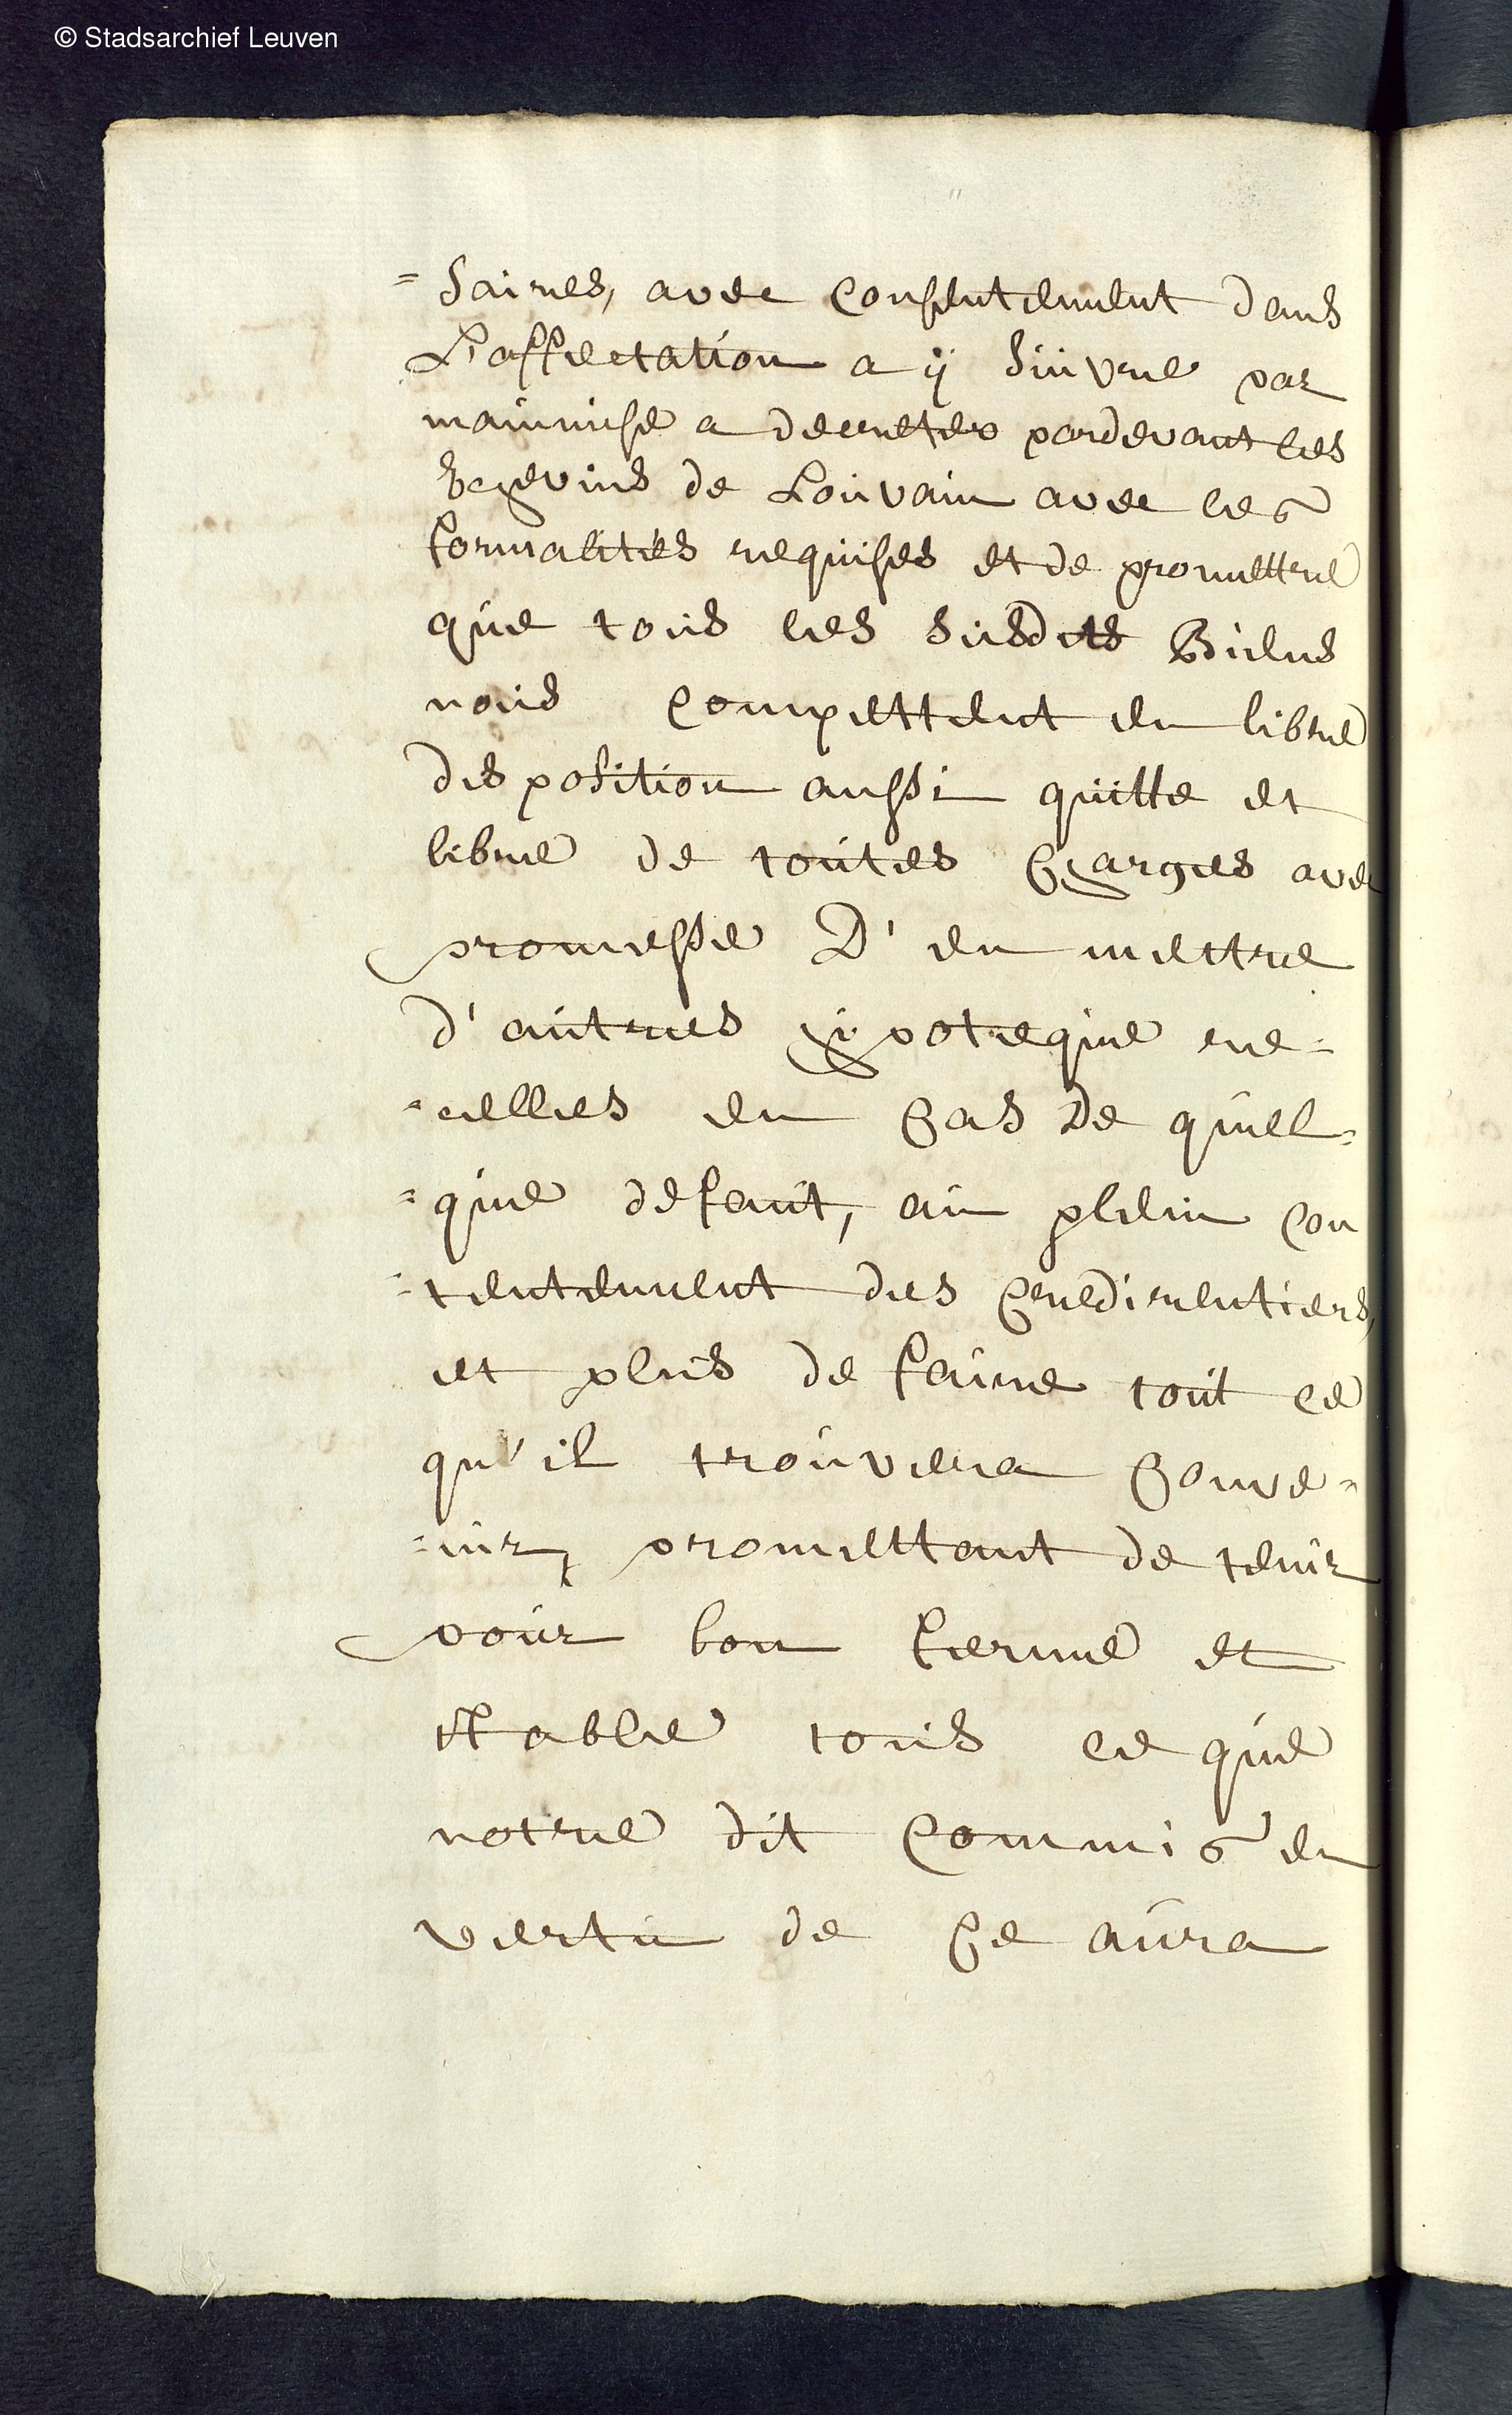 © Stadsarchief Leuven
= saires, avec consentement dans
L'affectation a ÿ suivre par
mainmise a decreter pardevant les
Echevins de Louvain avec les
formalités requises et de promettre
que tous les susdits Biens
nous Compettent en libre
disposition aussi quitte et
libre de toutes Charges avec
promesse D'en mettre
d'autres hÿpoteque re=
=elles en Cas De quel=
=que defaut, au plein con
=tentement des Credirentiers,
et plus de faire tout ce
qu'il trouvera Conve=
=nir, promettant de tenir
pour bon ferme et
stable tous ce que
notre dit Commis en
vertu de Ce aura